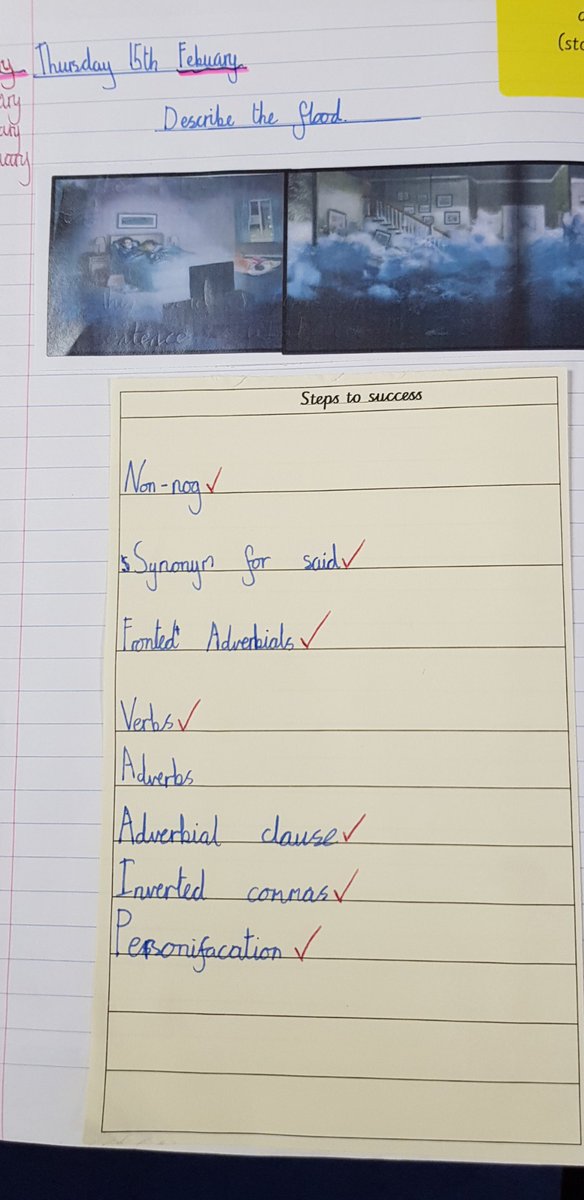 Thursday 15th Febuary
(sto
Describe the flood.
Steps to success
Non-nog✓
Synonym for said✓
Fronted Adverbials✓
Verbs✓
Adverbs
Adverbial clause✓
Inverted commas✓
Personifacation✓